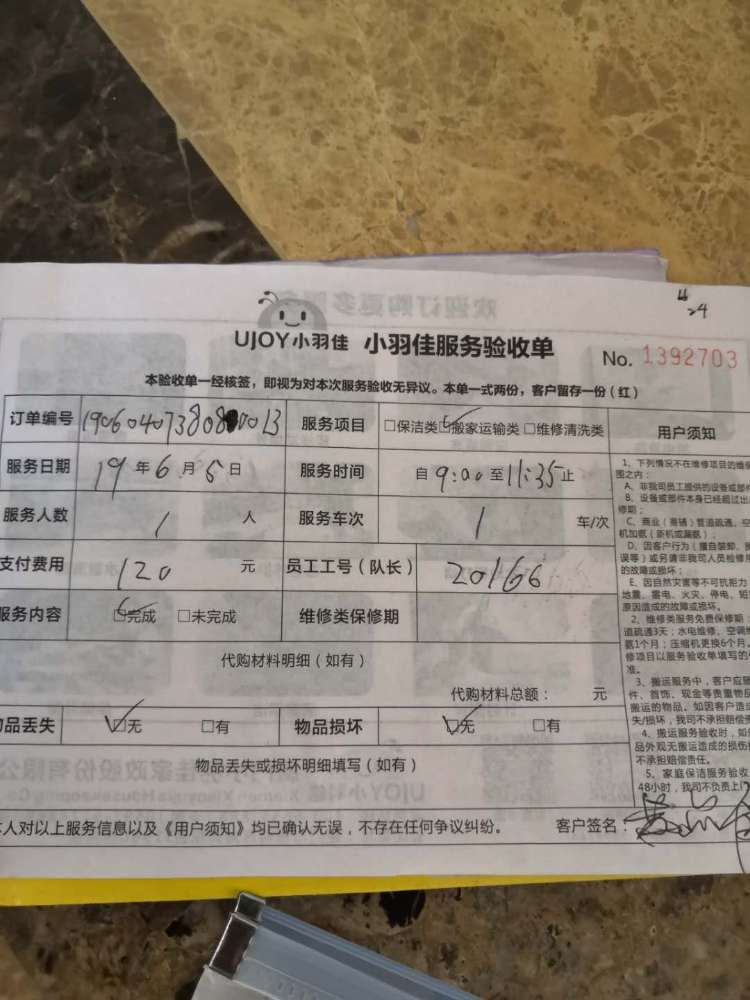 24
UJOY小羽佳 小羽佳服务验收单 No. 1392703
本验收单一经核签，即视为对本次服务验收无异议。本单一式两份，客户留存一份（红）
订单编号 服务项目 □保洁类 ☑搬家运输类 □维修清洗类 用户须知
服务日期 19年6月5日 服务时间 自9:00至11:35止
服务人数 1 人 服务车次 1 车/次
支付费用 120 元 员工工号（队长） 20166
服务内容 ☑完成 □未完成 维修类保修期
代购材料明细（如有）
代购材料总额： 元
品丢失 ☑无 □有 物品损坏 ☑无 □有
物品丢失或损坏明细填写（如有）
人对以上服务信息以及《用户须知》均已确认无误，不存在任何争议纠纷。 客户签名：
1、下列情况不在维修项目的维
图之内：
A、非我司员工提供的设备或部
B、设备或部件本身已经超过
修期；
C、商业（商铺）管道疏通、空
机加氨（新机或漏氨）；
D、因客户行为（擅自装卸、
误等）或另请非我司人员检修
的故障或损坏；
E、因自然灾害等不可抗拒力
地震、雷电、火灾、停电、短
原因造成的故障或损坏。
2、维修类服务免费保修期：
道疏通3天；水电维修、空调
氨1个月；压缩机更换6个月。
修项目以服务验收单填写的
准。
3、搬运服务中，客户应
件、首饰、现金等贵重物
搬运的物品。如因客户造
失/损坏，我司不承担赔偿
4、搬运服务验收时，如
品外观无搬运造成的损伤
不承担赔偿责任。
5、家庭保洁服务验收
48小时，我司不负责上门